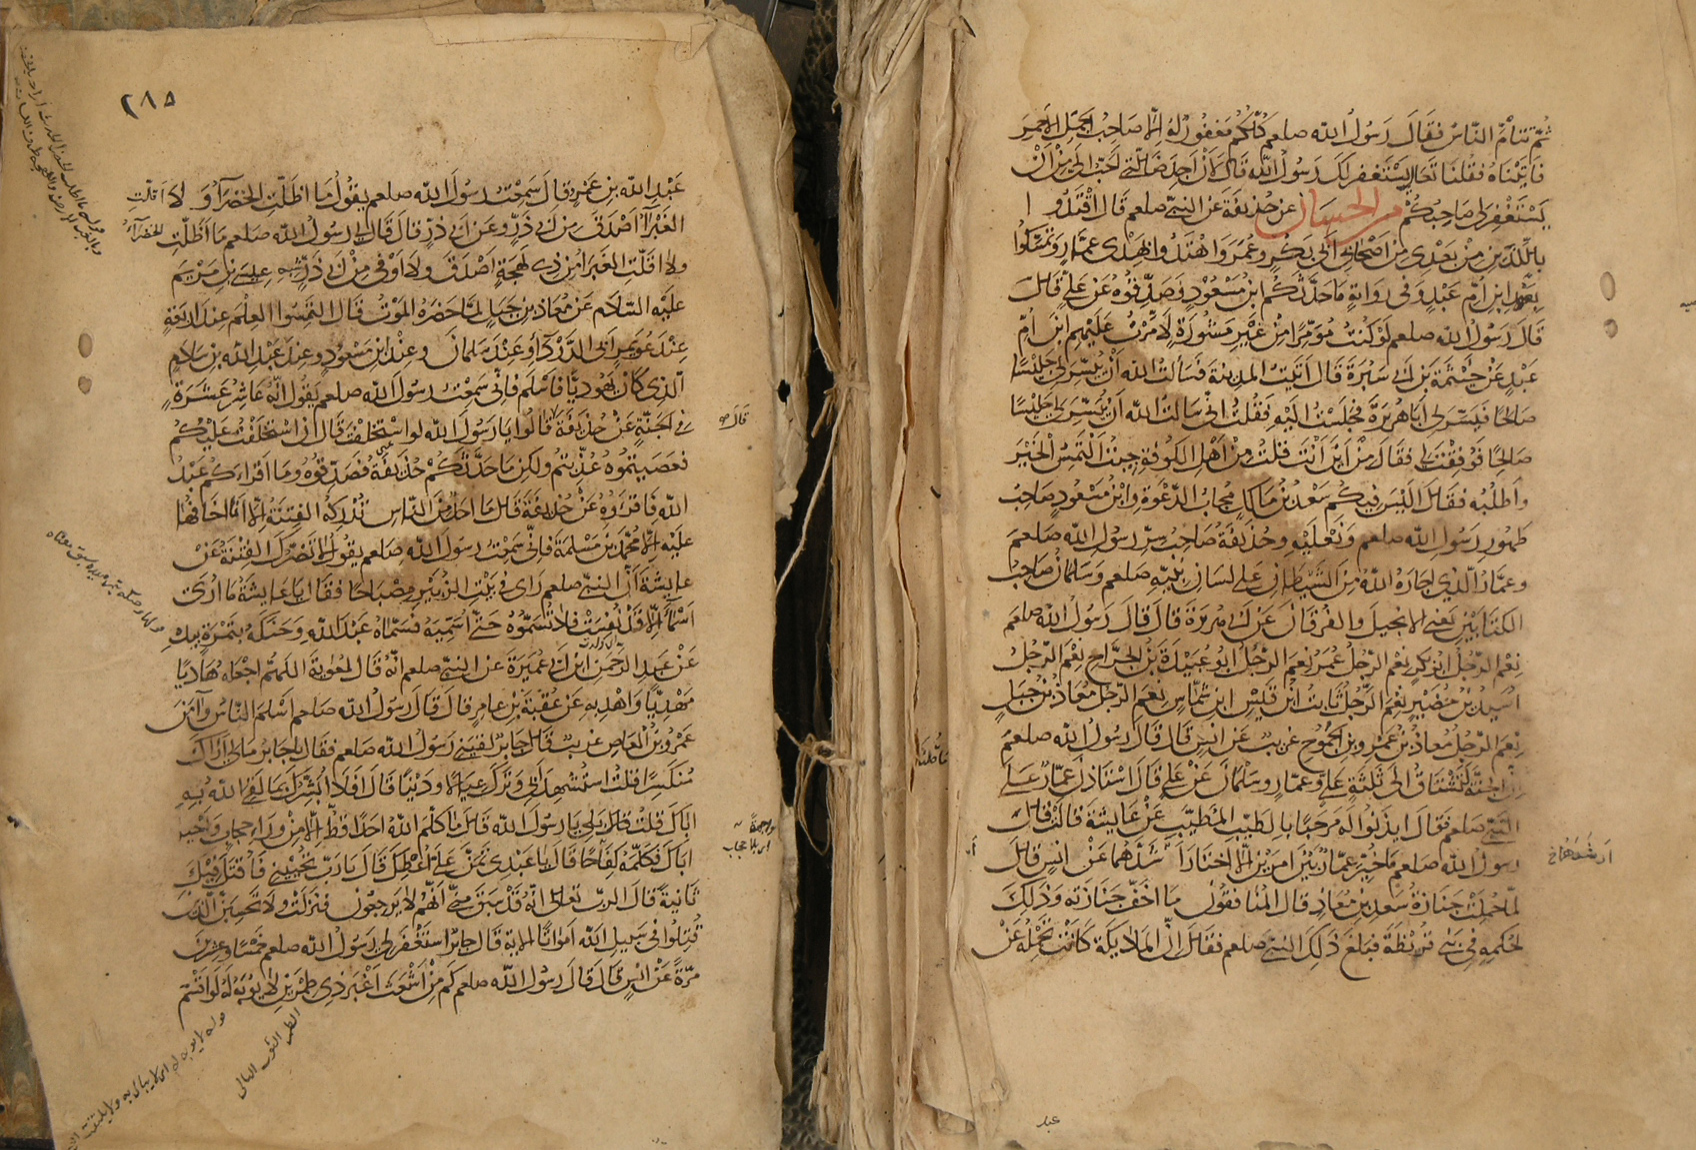 ثم تتامّ الناس فقال رسول الله صلعم كلكم مغفور له الا صاحب الجمل الاحمر
فاتيناه فقلنا تعال يستغفر لك رسول الله قال لان اجد ضالتي احب الي من ان
يستغفر لي صاحبكم من الحسان عن حذيفة عن النبي صلعم قال اقتدوا
باللذين من بعدي من اصحابي ابي بكر وعمر واهتدوا بهدي عمار وتمسكوا
بعهد ابن ام عبد وفي رواية ما حدثكم ابن مسعود فصدقوه عن علي قال
قال رسول الله صلعم لو كنت مؤمرا من غير مشورة لامرت عليهم ابن ام
عبد عن خيثمة بن ابي سبرة قال اتيت المدينة فسالت الله ان ييسر لي جليسا
صالحا فيسر لي ابا هريرة فجلست اليه فقلت اني سالت الله ان ييسر لي جليسا
صالحا فوفقت لي فقال من اين انت قلت من اهل الكوفة جئت التمس الخير
واطلبه فقال اليس فيكم سعد بن مالك مجاب الدعوة وابن مسعود صاحب
طهور رسول الله صلعم ونعليه وحذيفة صاحب سر رسول الله صلعم
وعمار الذي اجاره الله من الشيطان على لسان نبيه صلعم وسلمان صاحب
الكتابين يعني الانجيل والفرقان عن ابي هريرة قال قال رسول الله صلعم
نعم الرجل ابو بكر نعم الرجل عمر نعم الرجل ابو عبيدة بن الجراح نعم الرجل
اسيد بن حضير نعم الرجل ثابت ابن قيس ابن شماس نعم الرجل معاذ بن جبل
نعم الرجل معاذ بن عمرو بن الجموح غريب عن انس قال قال رسول الله صلعم
ان الجنة تشتاق الى ثلثة علي وعمار وسلمان عن علي قال استاذن عمار على
النبي صلعم فقال ايذنوا له مرحبا بالطيب المطيب عن عايشة قالت قال
رسول الله صلعم ما خير عمار بين امرين الا اختار اشدهما عن انس قال
لما حملت جنازة سعد بن معاذ قال المنافقون ما اخف جنازته وذلك
لحكمه في بني قريظة فبلغ ذلك النبي صلعم فقال ان الملائكة كانت تحمله عن
عبد
٢٨٥
عبد الله بن عمرو قال سمعت رسول الله صلعم يقول ما اظلت الخضراء ولا اقلت
الغبراء اصدق من ابي ذر وعن ابي ذر قال قال لي رسول الله صلعم ما اظلت الخضراء
ولا اقلت الغبراء من ذي لهجة اصدق ولا اوفى من ابي ذر شبه عيسى بن مريم
عليه السلام عن معاذ بن جبل لما حضره الموت قال التمسوا العلم عند اربعة
عند عويمر ابي الدرداء وعند سلمان وعند ابن مسعود وعند عبد الله بن سلام
الذي كان يهوديا فاسلم فاني سمعت رسول الله صلعم يقول انه عاشر عشرة
في الجنة عن حذيفة قالوا يا رسول الله لو استخلفت قال ان استخلفت عليكم
فعصيتموه عذبتم ولكن ما حدثكم حذيفة فصدقوه وما اقراكم عبد
الله فاقرؤه عن حذيفة قال ما احد من الناس تدركه الفتنة الا انا اخافها
عليه الا محمد بن مسلمة فاني سمعت رسول الله صلعم يقول لا تضرك الفتنة عن
عايشة ان النبي صلعم راى في بيت الزبير مصباحا فقال يا عايشة ما ارى
اسماء الا قد نفست فلا تسموه حتى اسميه فسماه عبد الله وحنكه بتمرة بيده
عن عبد الرحمن ابن ابي عميرة عن النبي صلعم انه قال لمعوية اللهم اجعله هاديا
مهديا واهد به عن عقبة بن عامر قال قال رسول الله صلعم اسلم الناس وآمن
عمرو بن العاص غريب قال جابر لقيني رسول الله صلعم فقال يا جابر ما لي اراك
منكسرا قلت استشهد ابي وترك عيالا ودينا قال افلا ابشرك بما لقي الله به
اباك قلت بلى يا رسول الله قال ما كلم الله احدا قط الا من وراء حجاب واحيا
اباك فكلمه كفاحا قال يا عبدي تمن علي اعطك قال يا رب تحييني فاقتل فيك
ثانية قال الرب تعالى انه قد سبق مني انهم لا يرجعون فنزلت ولا تحسبن الذين
قتلوا في سبيل الله امواتا الاية قال جابر استغفر لي رسول الله صلعم خمسا وعشرين
مرة عن انس قال قال رسول الله صلعم كم من اشعث اغبر ذي طمرين لا يؤبه له لو اقسم
الطمر الثوب البالي